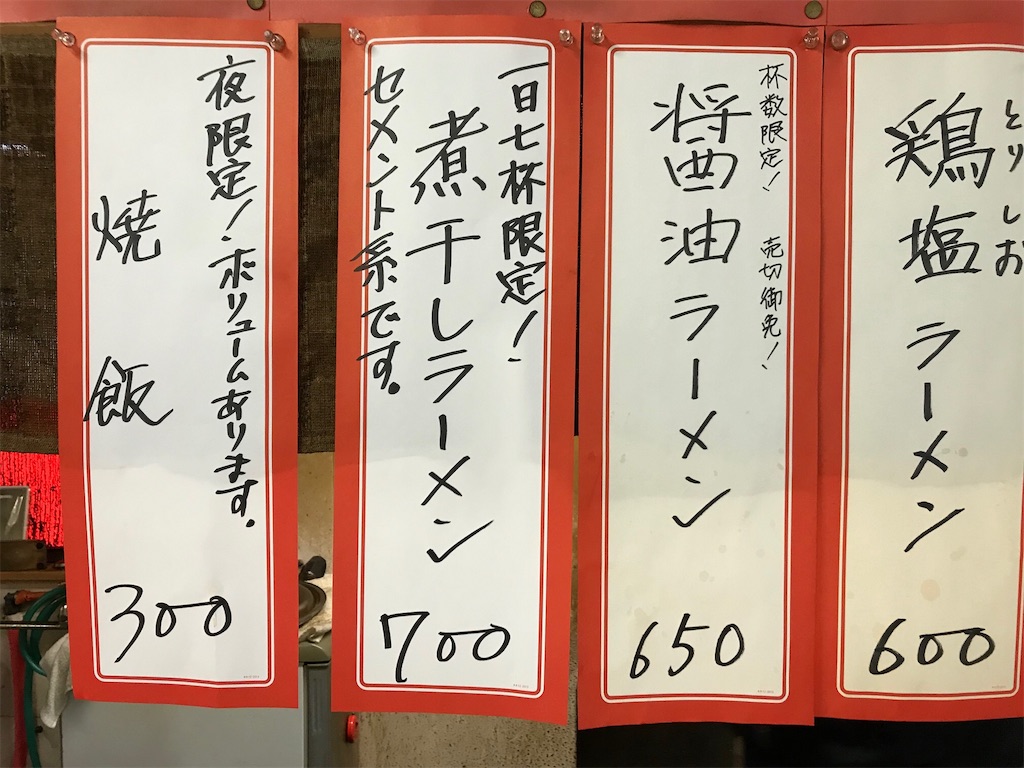 とりしお
鶏塩ラーメン
600
杯数限定! 売切御免!
醤油ラーメン
650
一日七杯限定!
煮干しラーメン
セメント系です。
700
夜限定!ボリュームあります。
焼飯
300